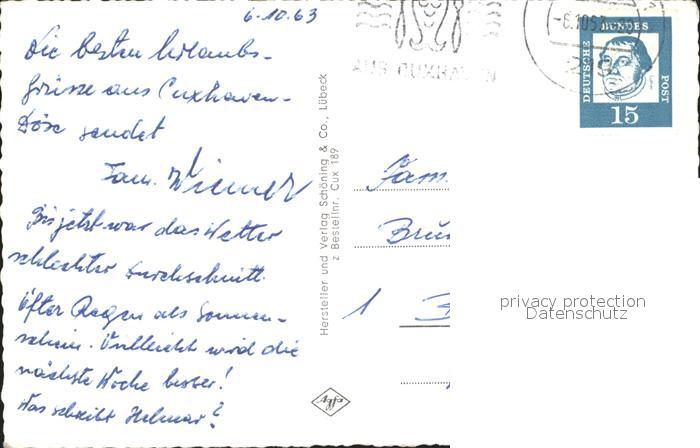 6.10.63
Die besten Urlaubs-
grüsse aus Cuxhaven-
Döse sendet
Fam. Wiemer
Bis jetzt war das Wetter
schlechter Durchschnitt.
Öfter Regen als Sonnen-
schein. Vielleicht wird die
nächste Woche besser!
Was schreibt Helmar?
Hersteller und Verlag Schöning & Co., Lübeck
z Bestellnr. Cux 189
Agfa
AUS CUXHAVEN
-6.10.63
DEUTSCHE BUNDES POST
15
Fam.
1
privacy protection
Datenschutz